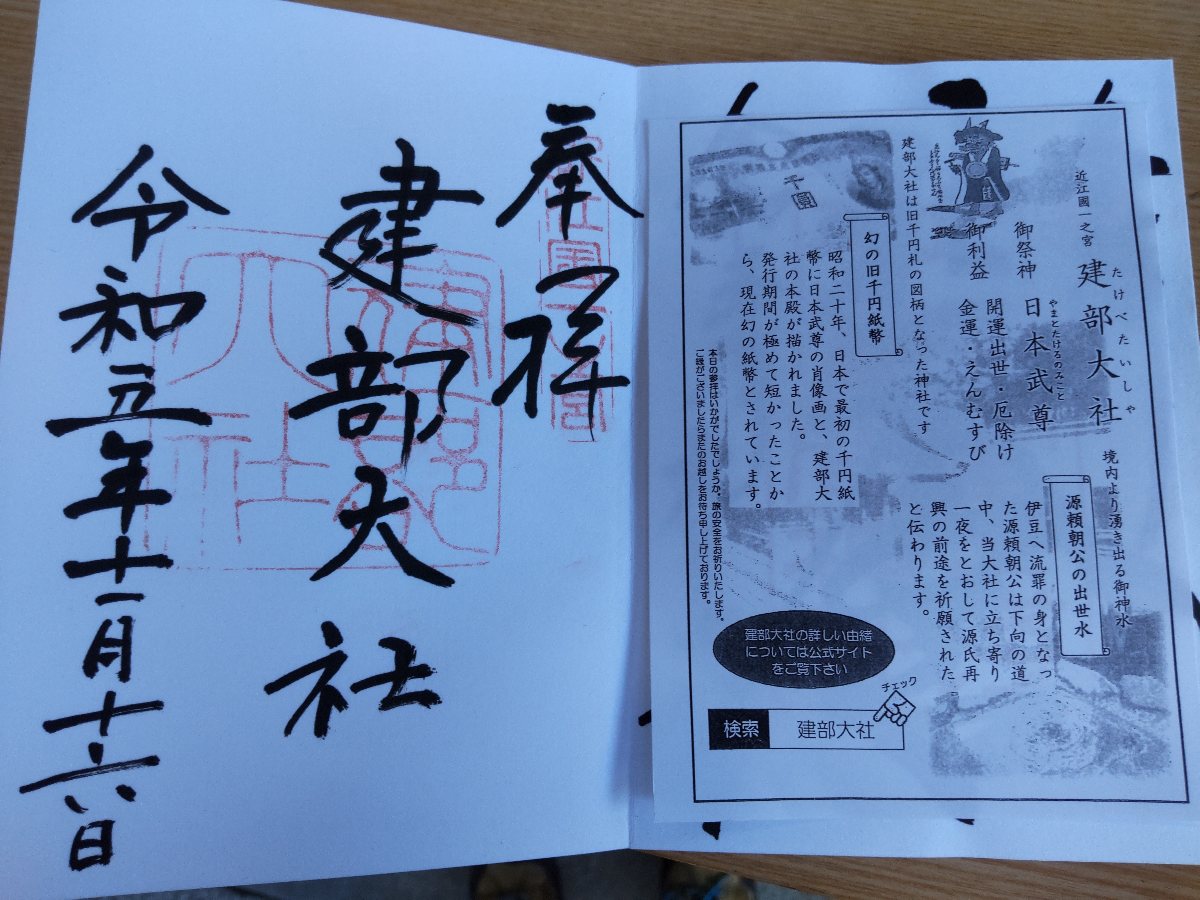 奉拝
建部大社
令和五年十一月十六日
近江國一之宮
たけべたいしゃ
建部大社
御祭神
やまとたけるのみこと
日本武尊
御利益
開運出世・厄除け
金運・えんむすび
建部大社は旧千円札の図柄となった神社です
千圓
幻の旧千円紙幣
昭和二十年、日本で最初の千円紙
幣に日本武尊の肖像画と、建部大
社の本殿が描かれました。
発行期間が極めて短かったことか
ら、現在幻の紙幣とされています。
境内より湧き出る御神水
源頼朝公の出世水
伊豆へ流罪の身となっ
た源頼朝公は下向の道
中、当大社に立ち寄り
一夜をとおして源氏再
興の前途を祈願された
と伝わります。
本日の参拝はいかがでしたでしょうか。旅の安全をお祈りいたします。
ご縁がございましたらまたのお越しをお待ち申し上げております。
建部大社の詳しい由緒
については公式サイト
をご覧下さい
チェック
検索 建部大社